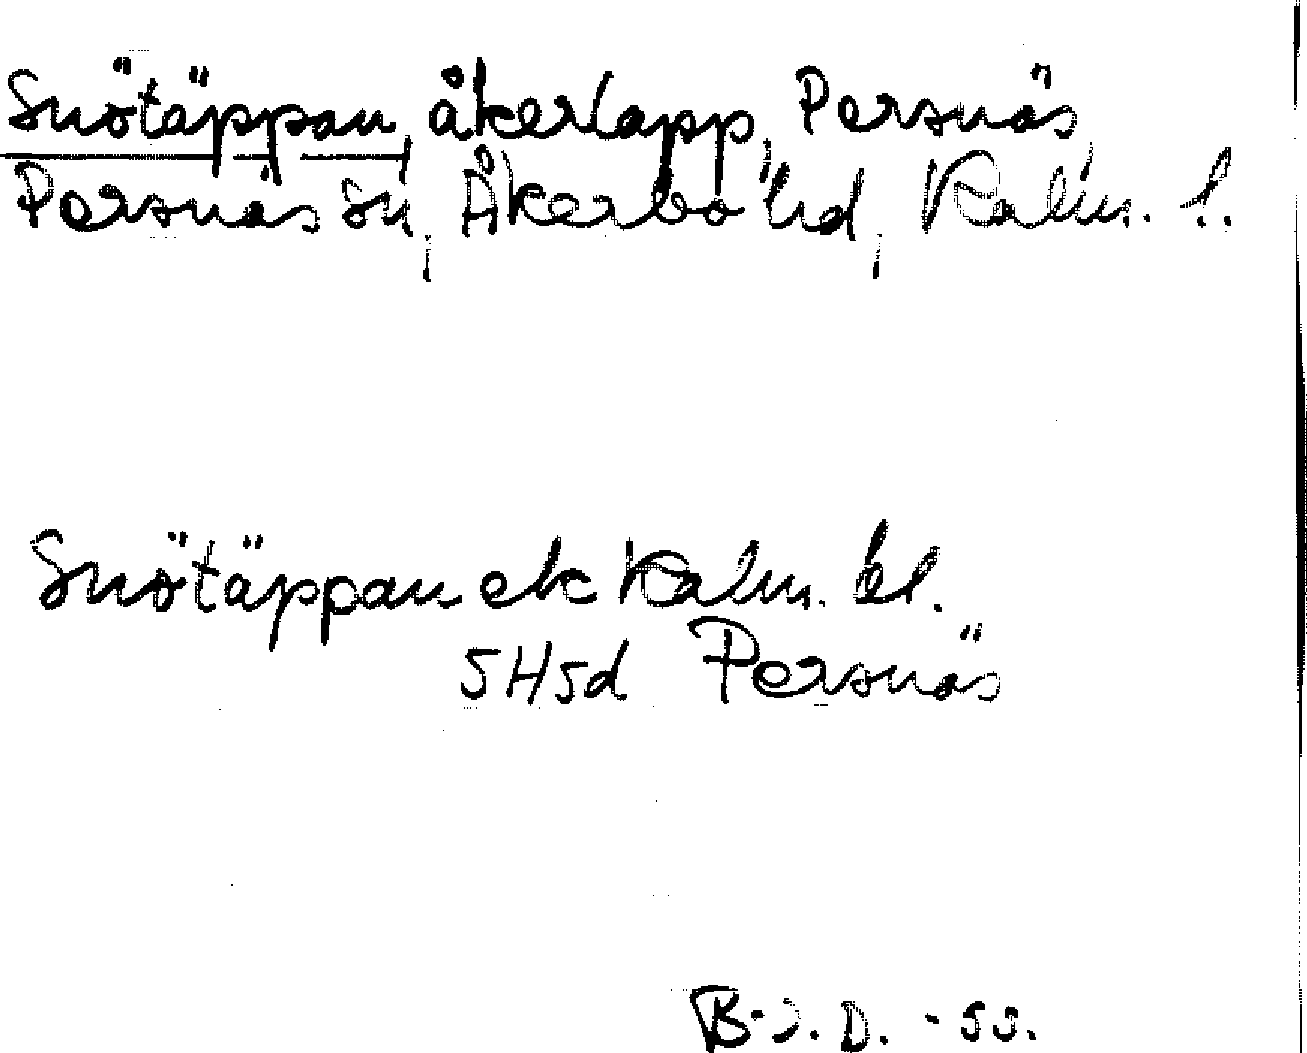 Snötäppan, åkerlapp, Persnäs
Persnäs sn, Åkerbo hd, Kalm. l.
Snötäppan ek Kalm. bl.
5H5d Persnäs
B-J. D. - 55.